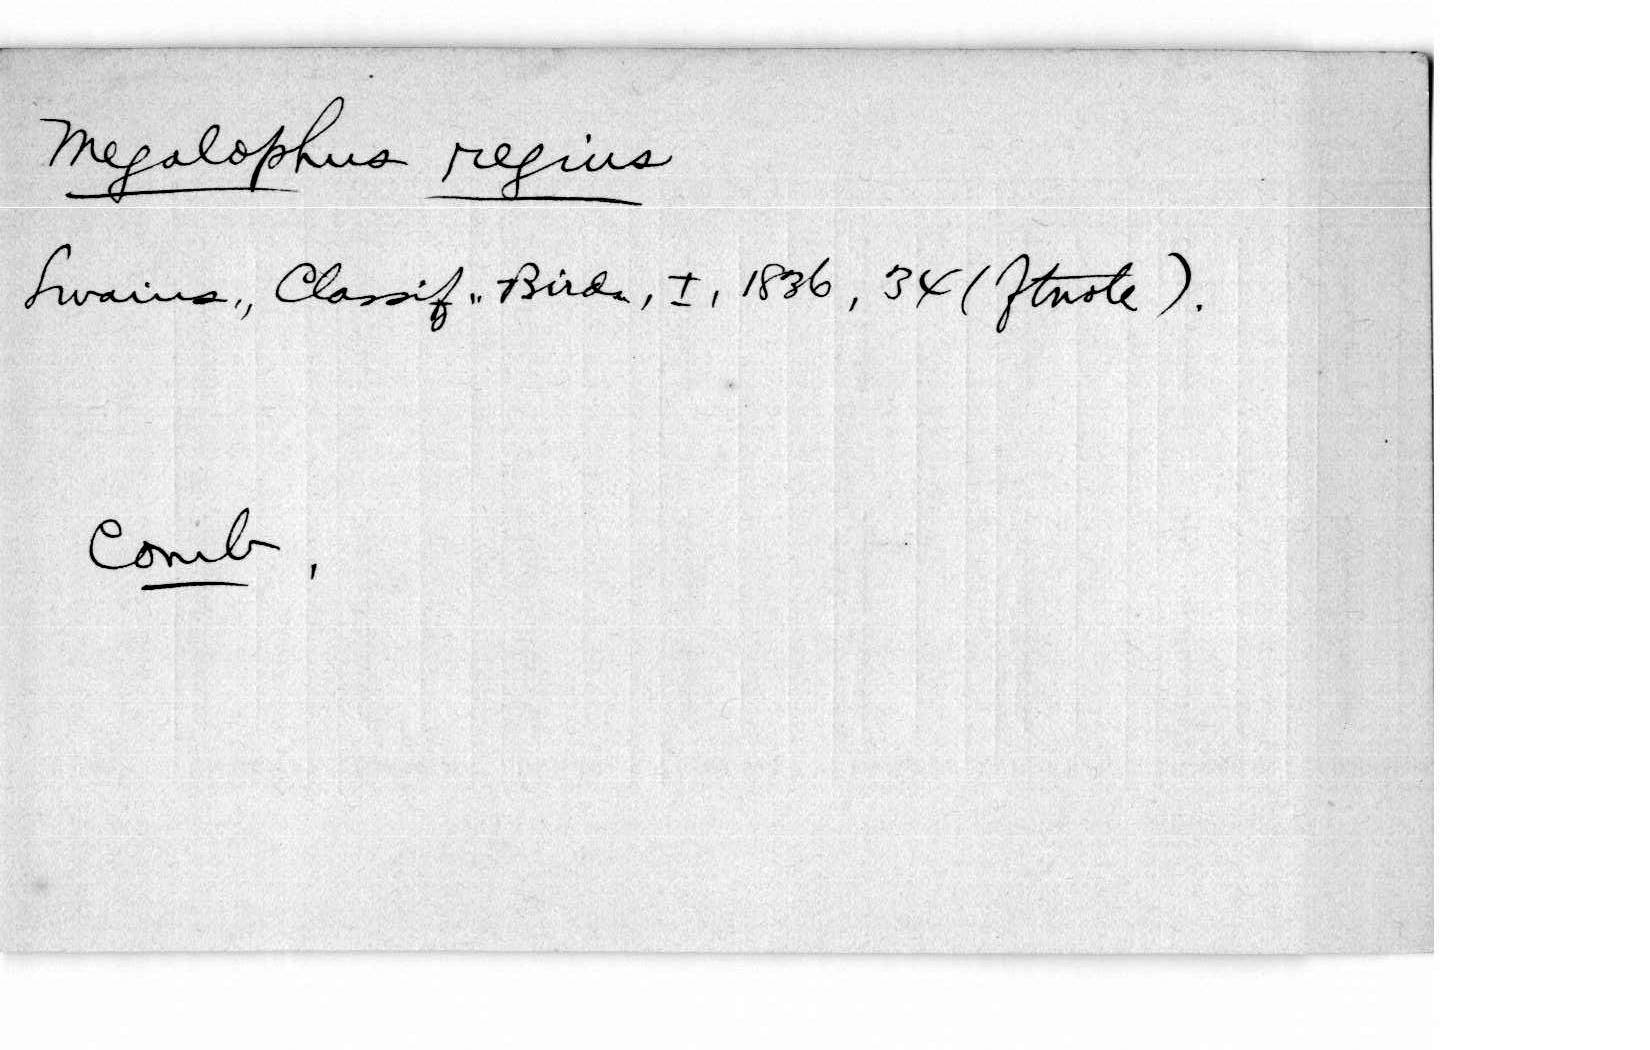 Megalophus regius
Swains., Classif. Birds, I, 1836, 34 (ftnote).
Comb.